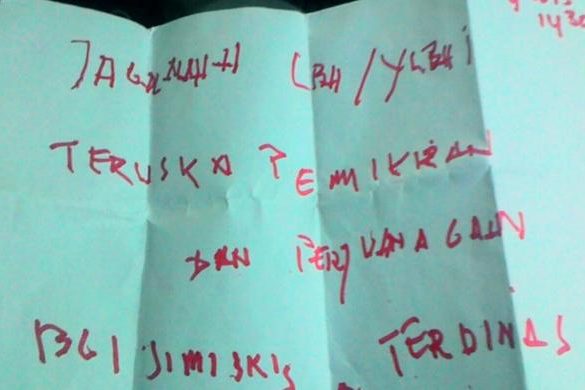 JAGALAH LBH/YLBHI
TERUSKA PEMIKIRAN
DAN PERJUANAGAN
BGI SIMISKIS TERDINAS